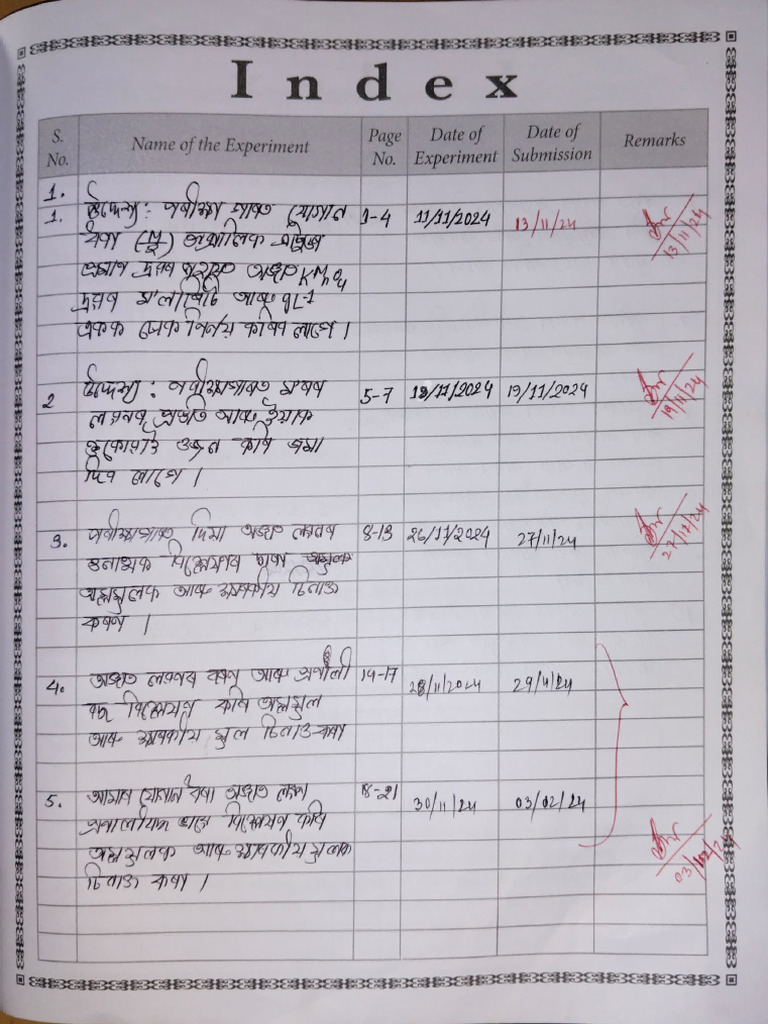 Index
S. No. Name of the Experiment Page No. Date of Experiment Date of Submission Remarks
1.
1. উদ্দেশ্য : পৰীক্ষা গাৰত যোগান 1-4 11/11/2024 13/11/24 13/11/24
ধৰা (M/2) অক্সালিক এচিডৰ
প্ৰমাণ দ্ৰৱৰ সহায়ত অজ্ঞাত KMnO₄
দ্ৰৱৰ ম'লাৰিটি আৰু gL-1
একক লেক নিৰ্ণয় কৰিব লাগে ।
2 উদ্দেশ্য : পৰীক্ষাগাৰত মৰৰ 5-7 18/11/2024 19/11/2024 19/11/24
লৱনৰ প্ৰস্তুতি আৰু ইয়াক
শুকোৱাই ওজন কৰি জমা
দিব লাগে ।
3. পৰীক্ষাগাৰত দিয়া অজ্ঞাত লৱনৰ 8-13 26/11/2024 27/11/24 27/12/24
গুনাত্মক বিশ্লেষণৰ দ্বাৰা
অম্লমূলক আৰু ক্ষাৰকীয় চিনাক্ত
কৰণ ।
4. অজ্ঞাত লৱণৰ বৰ্ণ আৰু প্ৰণালী 14-17 28/11/2024 29/11/24
বদ্ধ বিশ্লেষণ কৰি অম্লমূল
আৰু ক্ষাৰকীয় মূল চিনাক্ত কৰা
5. আমাৰ যোগান ধৰা অজ্ঞাত লৱণ 18-21 30/11/24 03/02/24
প্ৰণালীবদ্ধ ভাবে বিশ্লেষণ কৰি 03/12/24
অম্লমূলক আৰু ক্ষাৰকীয় মূলক
চিনাক্ত কৰা ।